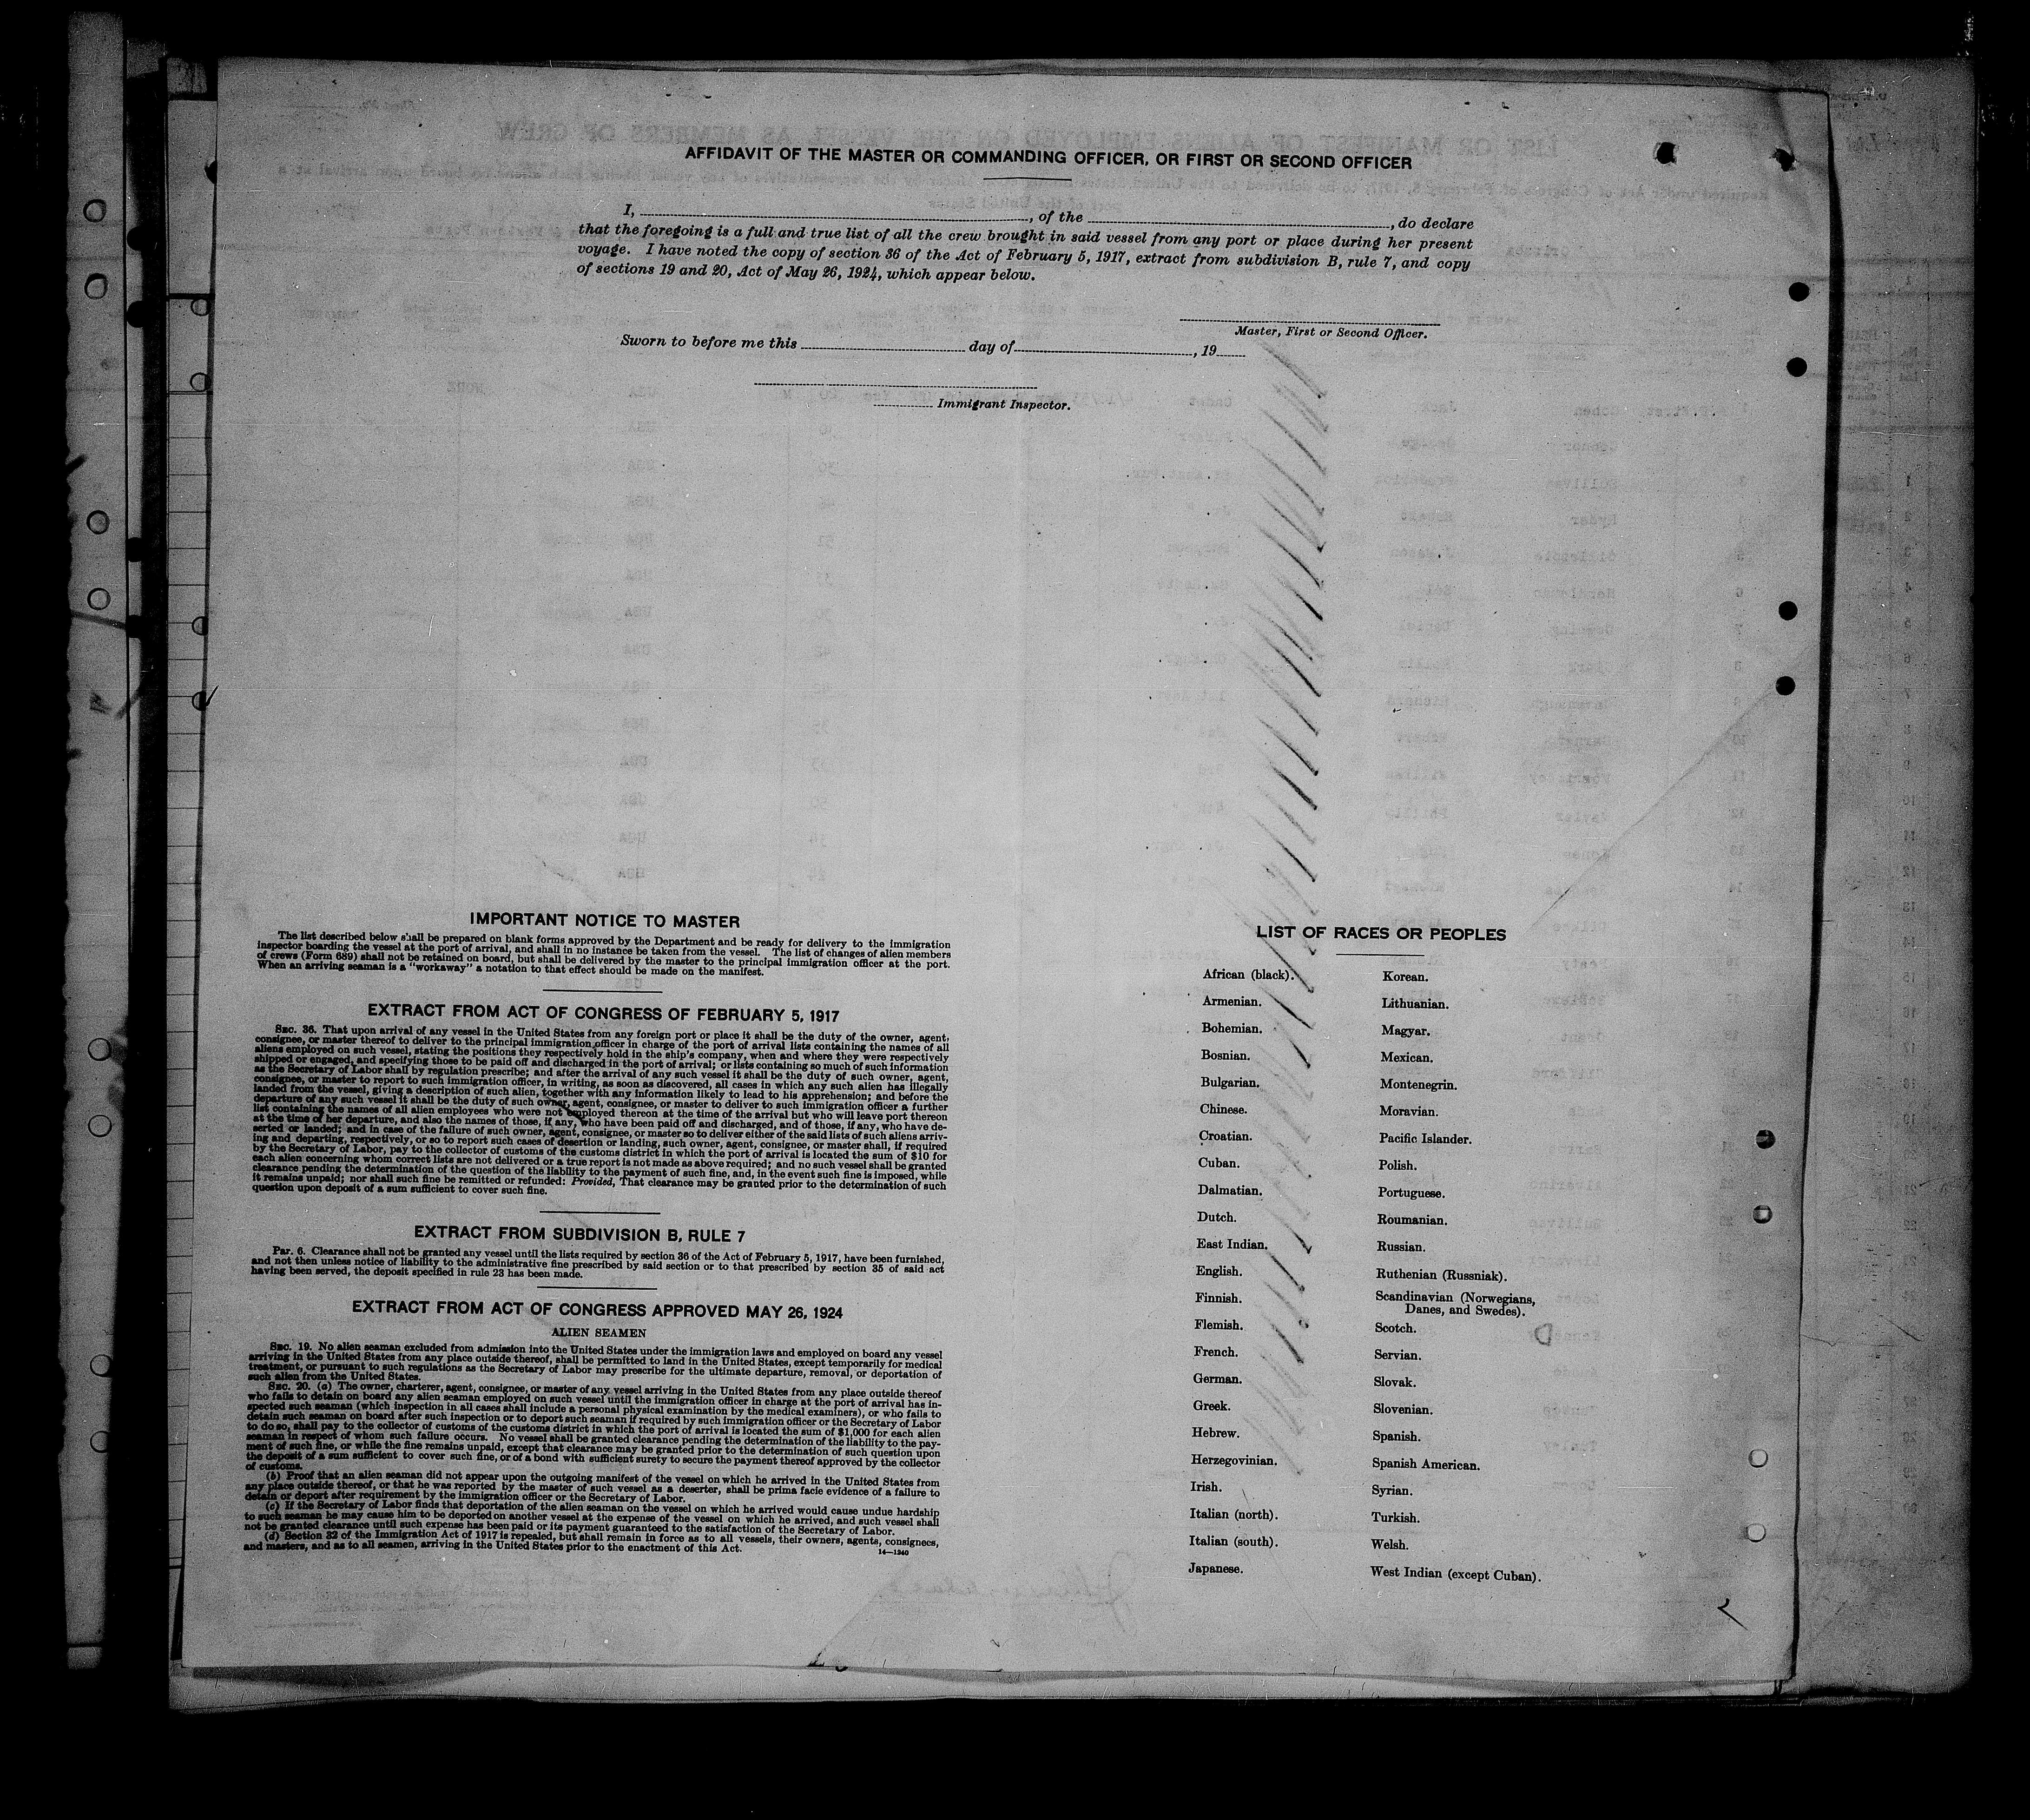 AFFIDAVIT OF THE MASTER OR COMMANDING OFFICER, OR FIRST OR SECOND OFFICER
I, , of the , do declare
that the foregoing is a full and true list of all the crew brought in said vessel from any port or place during her present
voyage. I have noted the copy of section 36 of the Act of February 5, 1917, extract from subdivision B, rule 7, and copy
of sections 19 and 20, Act of May 26, 1924, which appear below.
Master, First or Second Officer.
Sworn to before me this day of , 19
Immigrant Inspector.
IMPORTANT NOTICE TO MASTER
The list described below shall be prepared on blank forms approved by the Department and be ready for delivery to the immigration
inspector boarding the vessel at the port of arrival, and shall in no instance be taken from the vessel. The list of changes of alien members
of crews (Form 689) shall not be retained on board, but shall be delivered by the master to the principal immigration officer at the port.
When an arriving seaman is a "workaway" a notation to that effect should be made on the manifest.
EXTRACT FROM ACT OF CONGRESS OF FEBRUARY 5, 1917
SEC. 36. That upon arrival of any vessel in the United States from any foreign port or place it shall be the duty of the owner, agent,
consignee, or master thereof to deliver to the principal immigration officer in charge of the port of arrival lists containing the names of all
aliens employed on such vessel, stating the positions they respectively hold in the ship's company, when and where they were respectively
shipped or engaged, and specifying those to be paid off and discharged in the port of arrival; or lists containing so much of such information
as the Secretary of Labor shall by regulation prescribe; and after the arrival of any such vessel it shall be the duty of such owner, agent,
consignee, or master to report to such immigration officer, in writing, as soon as discovered, all cases in which any such alien has illegally
landed from the vessel, giving a description of such alien, together with any information likely to lead to his apprehension; and before the
departure of any such vessel it shall be the duty of such owner, agent, consignee, or master to deliver to such immigration officer a further
list containing the names of all alien employees who were not employed thereon at the time of the arrival but who will leave port thereon
at the time of her departure, and also the names of those, if any, who have been paid off and discharged, and of those, if any, who have de-
serted or landed; and in case of the failure of such owner, agent, consignee, or master so to deliver either of the said lists of such aliens arriv-
ing and departing, respectively, or so to report such cases of desertion or landing, such owner, agent, consignee, or master shall, if required
by the Secretary of Labor, pay to the collector of customs of the customs district in which the port of arrival is located the sum of $10 for
each alien concerning whom correct lists are not delivered or a true report is not made as above required; and no such vessel shall be granted
clearance pending the determination of the question of the liability to the payment of such fine, and, in the event such fine is imposed, while
it remains unpaid; nor shall such fine be remitted or refunded: Provided, That clearance may be granted prior to the determination of such
question upon deposit of a sum sufficient to cover such fine.
EXTRACT FROM SUBDIVISION B, RULE 7
Par. 6. Clearance shall not be granted any vessel until the lists required by section 36 of the Act of February 5, 1917, have been furnished,
and not then unless notice of liability to the administrative fine prescribed by said section or to that prescribed by section 35 of said act
having been served, the deposit specified in rule 23 has been made.
EXTRACT FROM ACT OF CONGRESS APPROVED MAY 26, 1924
ALIEN SEAMEN
SEC. 19. No alien seaman excluded from admission into the United States under the immigration laws and employed on board any vessel
arriving in the United States from any place outside thereof, shall be permitted to land in the United States, except temporarily for medical
treatment, or pursuant to such regulations as the Secretary of Labor may prescribe for the ultimate departure, removal, or deportation of
such alien from the United States.
SEC. 20. (a) The owner, charterer, agent, consignee, or master of any vessel arriving in the United States from any place outside thereof
who fails to detain on board any alien seaman employed on such vessel until the immigration officer in charge at the port of arrival has in-
spected such seaman (which inspection in all cases shall include a personal physical examination by the medical examiners), or who fails to
detain such seaman on board after such inspection or to deport such seaman if required by such immigration officer or the Secretary of Labor
to do so, shall pay to the collector of customs of the customs district in which the port of arrival is located the sum of $1,000 for each alien
seaman in respect of whom such failure occurs. No vessel shall be granted clearance pending the determination of the liability to the pay-
ment of such fine, or while the fine remains unpaid, except that clearance may be granted prior to the determination of such question upon
the deposit of a sum sufficient to cover such fine, or of a bond with sufficient surety to secure the payment thereof approved by the collector
of customs.
(b) Proof that an alien seaman did not appear upon the outgoing manifest of the vessel on which he arrived in the United States from
any place outside thereof, or that he was reported by the master of such vessel as a deserter, shall be prima facie evidence of a failure to
detain or deport after requirement by the immigration officer or the Secretary of Labor.
(c) If the Secretary of Labor finds that deportation of the alien seaman on the vessel on which he arrived would cause undue hardship
to such seaman he may cause him to be deported on another vessel at the expense of the vessel on which he arrived, and such vessel shall
not be granted clearance until such expense has been paid or its payment guaranteed to the satisfaction of the Secretary of Labor.
(d) Section 32 of the Immigration Act of 1917 is repealed, but shall remain in force as to all vessels, their owners, agents, consignees,
and masters, and as to all seamen, arriving in the United States prior to the enactment of this Act.
14—1240
LIST OF RACES OR PEOPLES
African (black).
Armenian.
Bohemian.
Bosnian.
Bulgarian.
Chinese.
Croatian.
Cuban.
Dalmatian.
Dutch.
East Indian.
English.
Finnish.
Flemish.
French.
German.
Greek.
Hebrew.
Herzegovinian.
Irish.
Italian (north).
Italian (south).
Japanese.
Korean.
Lithuanian.
Magyar.
Mexican.
Montenegrin.
Moravian.
Pacific Islander.
Polish.
Portuguese.
Roumanian.
Russian.
Ruthenian (Russniak).
Scandinavian (Norwegians,
Danes, and Swedes).
Scotch.
Servian.
Slovak.
Slovenian.
Spanish.
Spanish American.
Syrian.
Turkish.
Welsh.
West Indian (except Cuban).